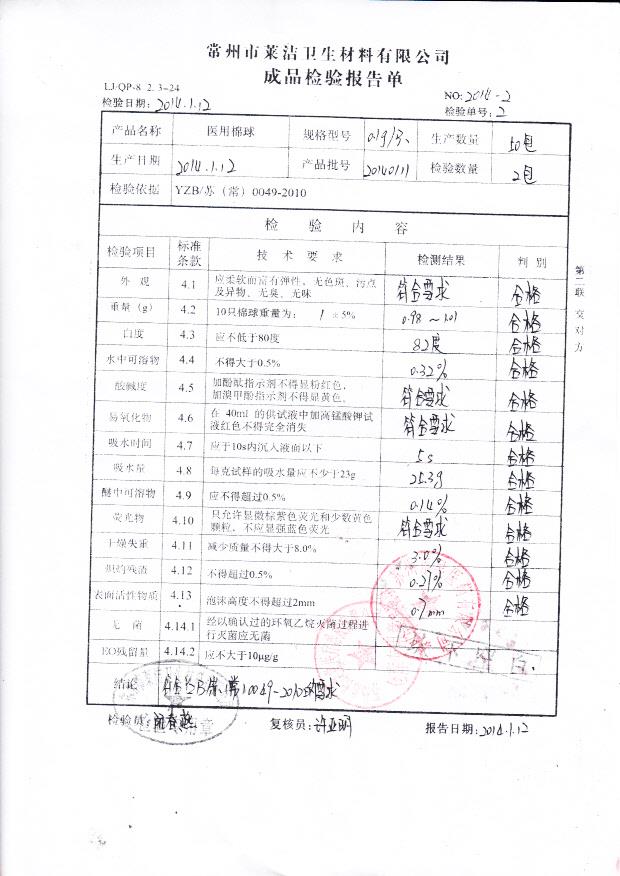 常州市莱洁卫生材料有限公司
成品检验报告单
LJ/QP-8.2.3-24
NO:2014-2
检验日期: 2014.1.12
检验单号: 2
产品名称 医用棉球 规格型号 0.1g/只 生产数量 50包
生产日期 2014.1.12 产品批号 20140111 检验数量 2包
检验依据 YZB/苏（常）0049-2010
检 验 内 容
检验项目 标准条款 技 术 要 求 检测结果 判 别
外 观 4.1 应柔软而富有弹性。无色斑、污点及异物、无臭、无味 符合要求 合格
重量（g） 4.2 10只棉球重量为: 1 ±5% 0.98～1.01 合格
白度 4.3 应不低于80度 82度 合格
水中可溶物 4.4 不得大于0.5% 0.32% 合格
酸碱度 4.5 加酚酞指示剂不得显粉红色，加溴甲酚指示剂不得显黄色。 符合要求 合格
易氧化物 4.6 在 40ml 的供试液中加高锰酸钾试液红色不得完全消失 符合要求 合格
吸水时间 4.7 应于10s内沉入液面以下 5s 合格
吸水量 4.8 每克试样的吸水量应不少于23g 25.3g 合格
醚中可溶物 4.9 应不得超过0.5% 0.14% 合格
荧光物 4.10 只允许显微棕紫色荧光和少数黄色颗粒，不应显强蓝色荧光 符合要求 合格
干燥失重 4.11 减少质量不得大于8.0% 3.0% 合格
炽灼残渣 4.12 不得超过0.5% 0.21% 合格
表面活性物质 4.13 泡沫高度不得超过2mm 0.7mm 合格
无 菌 4.14.1 经以确认过的环氧乙烷灭菌过程进行灭菌应无菌
EO残留量 4.14.2 应不大于10μg/g
结论 符合YZB/苏（常）0049-2010的要求
检验员: 复核员: 许亚明 报告日期: 2014.1.12
第二联 交对方